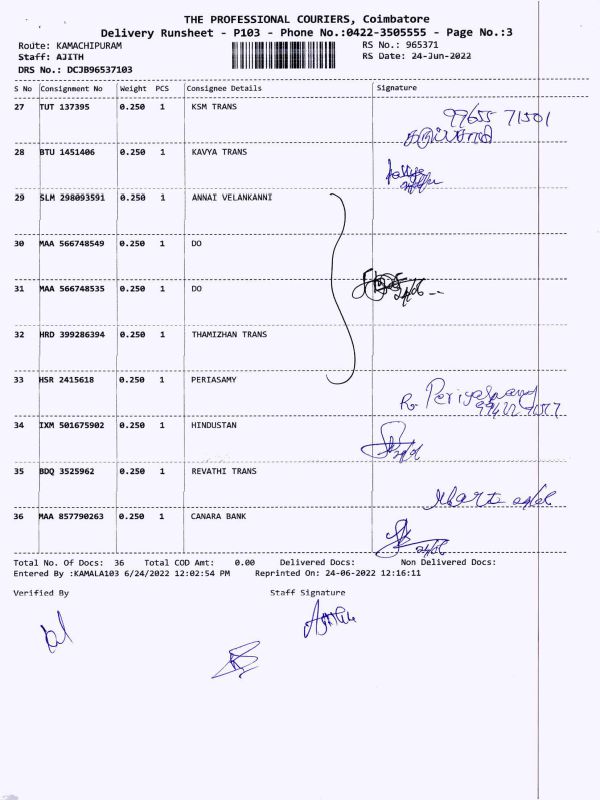 THE PROFESSIONAL COURIERS, Coimbatore
Delivery Runsheet - P103 - Phone No.:0422-3505555 - Page No.:3
Route: KAMACHIPURAM RS No.: 965371
Staff: AJITH RS Date: 24-Jun-2022
DRS No.: DCJB96537103
S No Consignment No Weight PCS Consignee Details Signature
27 TUT 137395 0.250 1 KSM TRANS
99655 71501
28 BTU 1451406 0.250 1 KAVYA TRANS
29 SLM 298093591 0.250 1 ANNAI VELANKANNI
30 MAA 566748549 0.250 1 DO
31 MAA 566748535 0.250 1 DO
32 HRD 399286394 0.250 1 THAMIZHAN TRANS
33 HSR 2415618 0.250 1 PERIASAMY
34 IXM 501675902 0.250 1 HINDUSTAN
35 BDQ 3525962 0.250 1 REVATHI TRANS
36 MAA 857790263 0.250 1 CANARA BANK
Total No. Of Docs: 36 Total COD Amt: 0.00 Delivered Docs: Non Delivered Docs:
Entered By :KAMALA103 6/24/2022 12:02:54 PM Reprinted On: 24-06-2022 12:16:11
Verified By Staff Signature